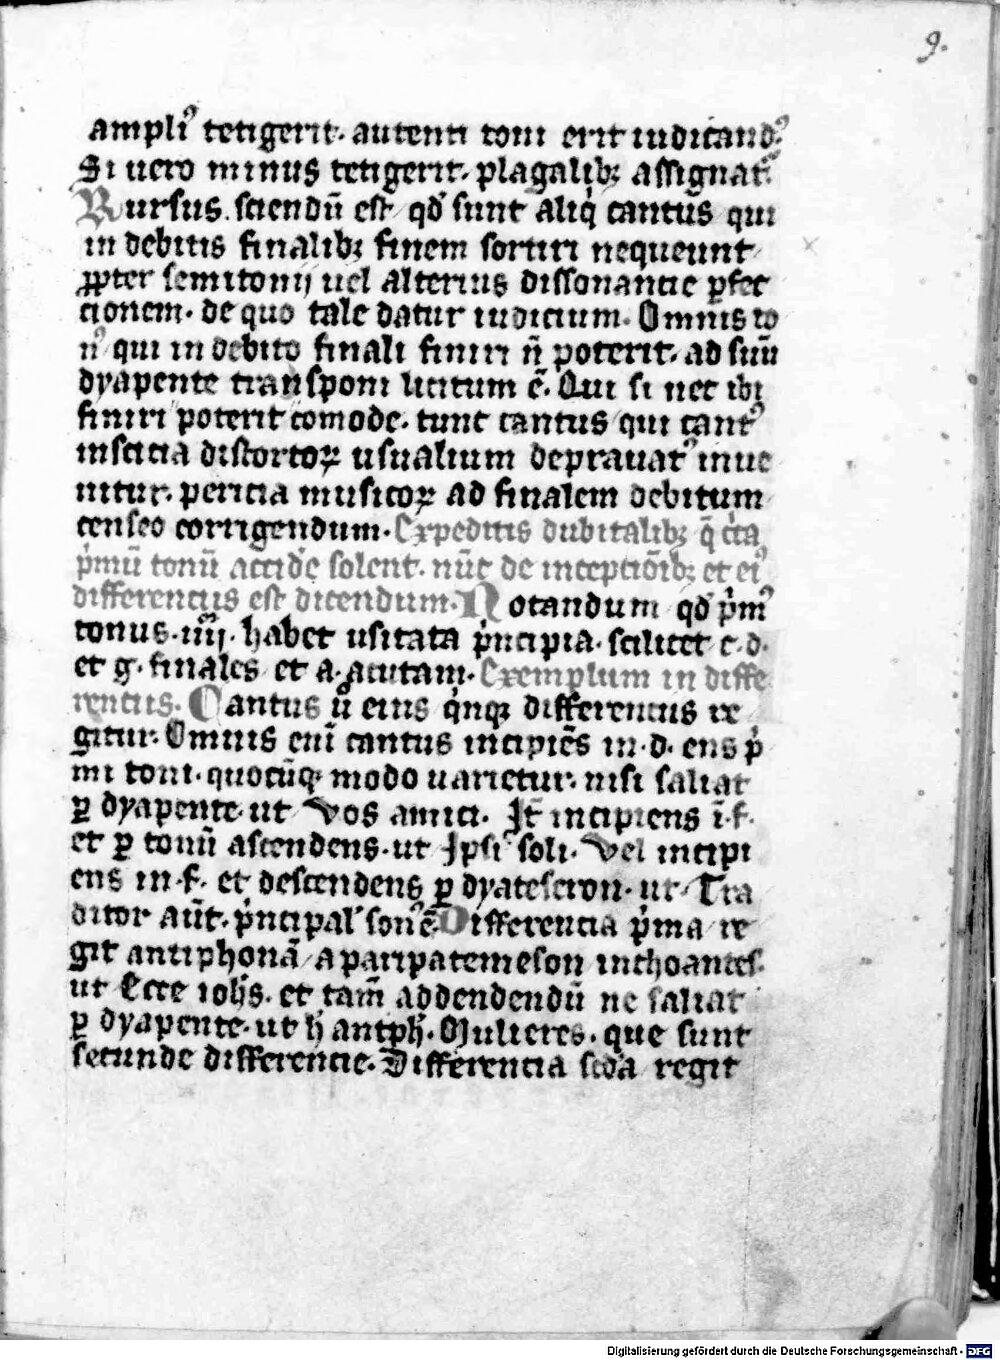 9.
ampli⁹ tetigerit. autenti toni erit iudicand⁹.
Si uero minus tetigerit. plagalibꝫ assignatͬ.
Rursus. sciendū est qd̄ sunt aliq̇ cantus qui
in debitis finalibꝫ finem sortiri nequeunt
ꝓpter semitonij uel alterius dissonancie ꝑfec
cionem. de quo tale datur iudicium. Omnis to
n⁹ qui in debito finali finiri n̄ poterit. ad suū
dyapente transponi licitum ē. Qui si nec ibi
finiri poterit comode. tunc cantus qui cant⁹
inscicia distortoꝝ usualium deprauatͬ inue
nitur. pericia musicoꝝ ad finalem debitum
censeo corrigendum. Expeditis dubitalibꝫ q̄ c̄ca
ṗmū tonū accide solent. nūc de incepcōibꝫ et ei⁹
differencijs est dicendum. Notandum qd̄ ṗm⁹
tonus. iiij. habet usitata ṗncipia. scilicet c. d.
et g. finales et a. acutam. Exemplum in diffe
rencijs. Cantus ů eius q̇nqꝫ differencijs re
gitur. Omnis eni̅ cantus incipiēs in. d. ens ṗ
mi toni. quocūqꝫ modo uarietur. nisi saliat
ꝑ dyapente. ut Vos amici. Jt̄ incipiens ī. f.
et ꝑ tonū ascendens. ut Ipsi soli. Vel incipi
ens in. f. et descendens ꝑ dyateseron. ut. Tra
ditor aūt. ṗncipal' son⁹ ē. Differencia ṗma re
git antiphonā a paripatemeson inchoantes.
ut Ecce ioh̄s. et tam̄ addendendū ne saliat
ꝑ dyapente. ut h̄ antph̄. Mulieres. que sunt
secunde differencie. Differencia scd̄a regit
Digitalisierung gefördert durch die Deutsche Forschungsgemeinschaft - DFG